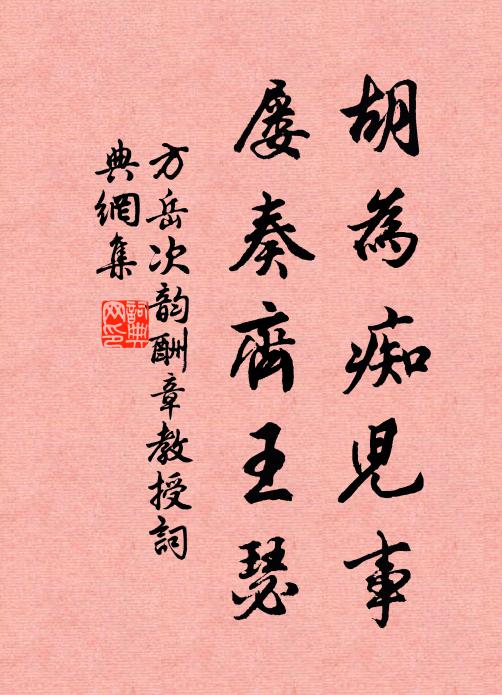 胡為痴児事
屡奏齊王瑟
方岳次韵酬章教授詞
典網集
詞典网印